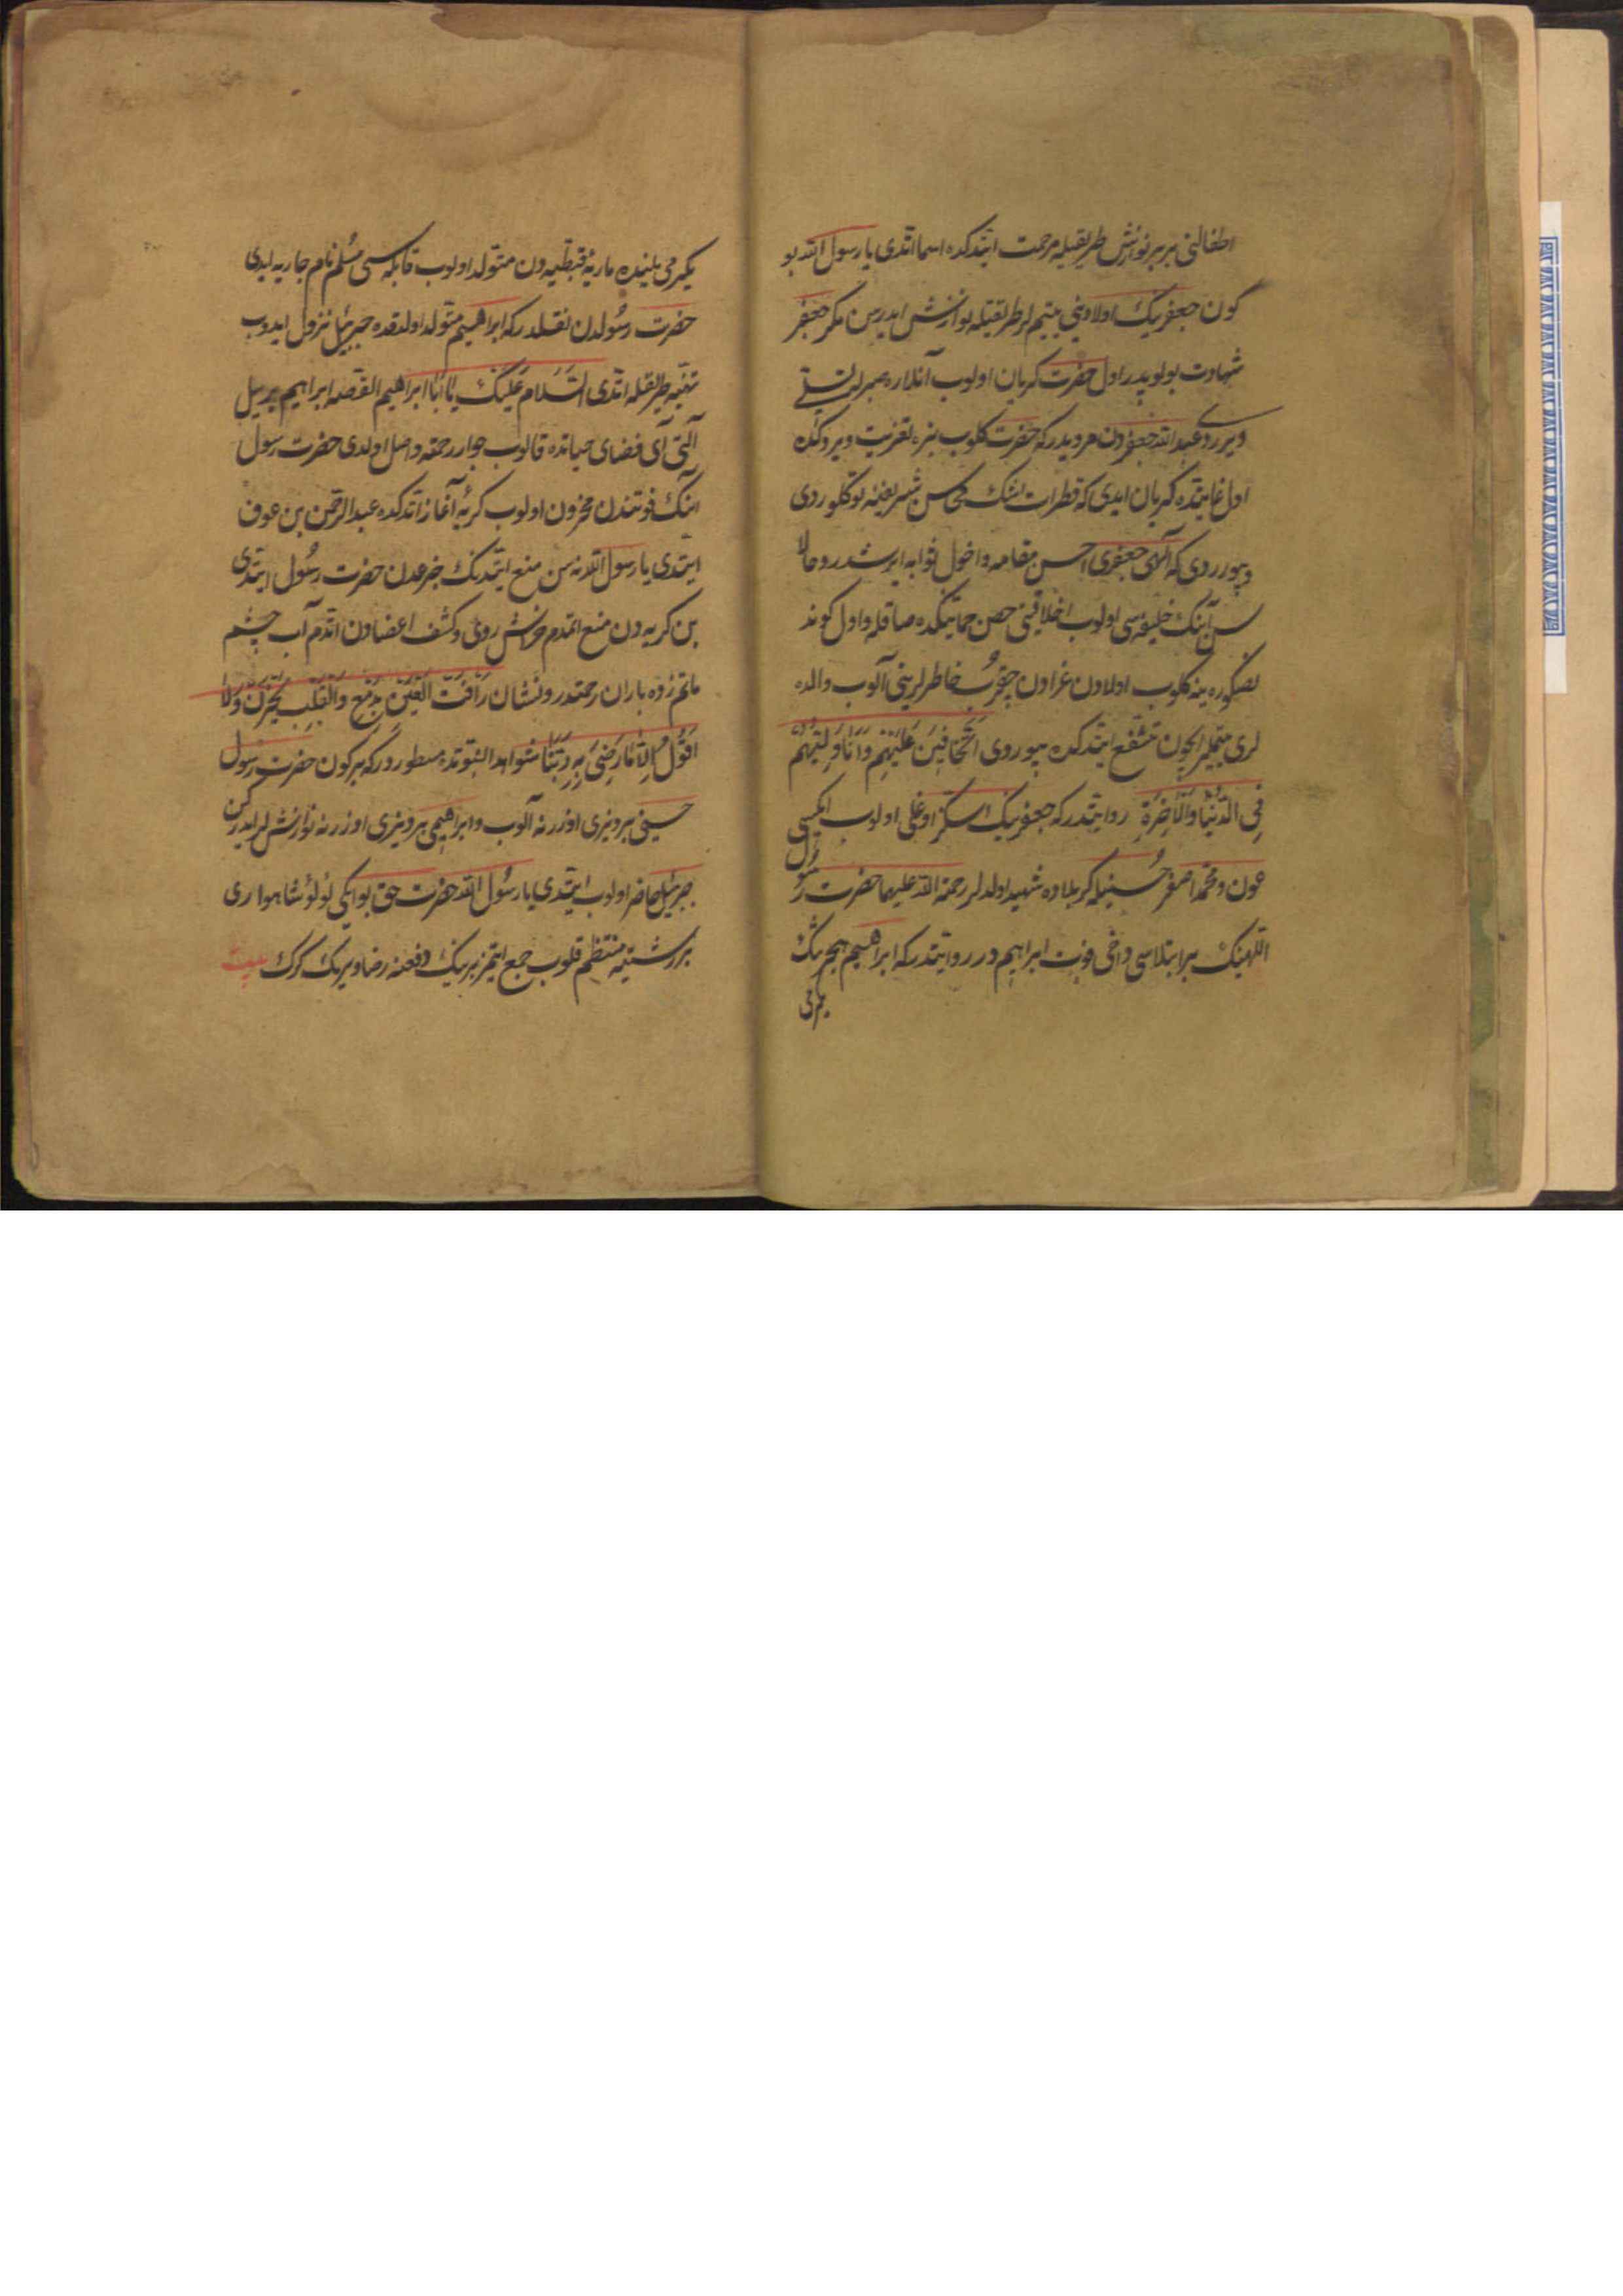 اطفالنی بربر نوازش طریقیله مرحمت ایتدکده اسما اتدی یا رسول الله بو
کون جعفرینک اولادینی یتیملر طریقیله نوازش ایدرسن مکر جعفر
شهادت بولوبدر اول حضرت کریان اولوب آنلاره صبرله تسلی
ویردی عبدالله جعفردن مرویدرکه حضرت کلوب بزه تعزیت ویردکده
اول غایتده کریان ایدی که قطرات اشک محاسن شریفنه توکلوردی
وبیوردی که الهی جعفری احسن مقامه واخول ثوابه ایرشدر وحالا
سن آنک خلیفه سی اولوب اخلاقینی حصن حمایتکده صاقله واول کوندن
صکره ینه کلوب اولادن عزادن چقروب خاطرلرینی آلوب والده
لری یتیملر ایچون تشفع ایتدکده بیوردی اتخافین علیهم وانا ولیهم
فی الدنیا والآخرة روایتدرکه جعفرینک سکز اوغلی اولوب ایکیسی
عون ومحمد اصغر حسینیله کربلاده شهید اولدلر رحمة الله علیهما حضرت رسول
اللهینک بر ابتلاسی داخی فوت ابراهیم در روایتدرکه ابراهیم هجرینک
یکرمی
یکرمی ییلینده ماریۀ قبطیه دن متولد اولوب قابله سی مسلم نام جاریه ایدی
حضرت رسولدن نقلدرکه ابراهیم متولد اولدقده جبرئیل نزول ایدوب
تهنیه طریقله اتدی السلام علیک یا ابا ابراهیم القصه ابراهیم بر ییل
آلتی آی فضای حیاتده قالوب جوار رحمته واصل اولدی حضرت رسول
انک فوتندن محزون اولوب کریه آغاز اتدکده عبدالرحمن بن عوف
ایتدی یا رسول الله نه سن منع ایتدنک جزعدن حضرت رسول ایتدی
بن کریه دن منع اتمدم خراش روی وکشف اعضادن اتدم آب چشم
ماتم زده باران رحمتدر ونشان رافت العین یدمع والقلب یحزن ولا
اقول الا ما رضی به ربنا شواهد النبوتده مسطوردرکه برکون حضرت رسول
حسینی بر دیزی اوزرنه آلوب وابراهیمی بر دیزی اوزرنه نوازشلر ایدرکن
جبرئیل حاضر اولوب ایتدی یا رسول الله حضرت حق بو ایکی لؤلؤ شاهواری
بر رشتیه منتظم قلوب جمع ایتمز برینک دفعنه رضا ویرمک کرک بیت